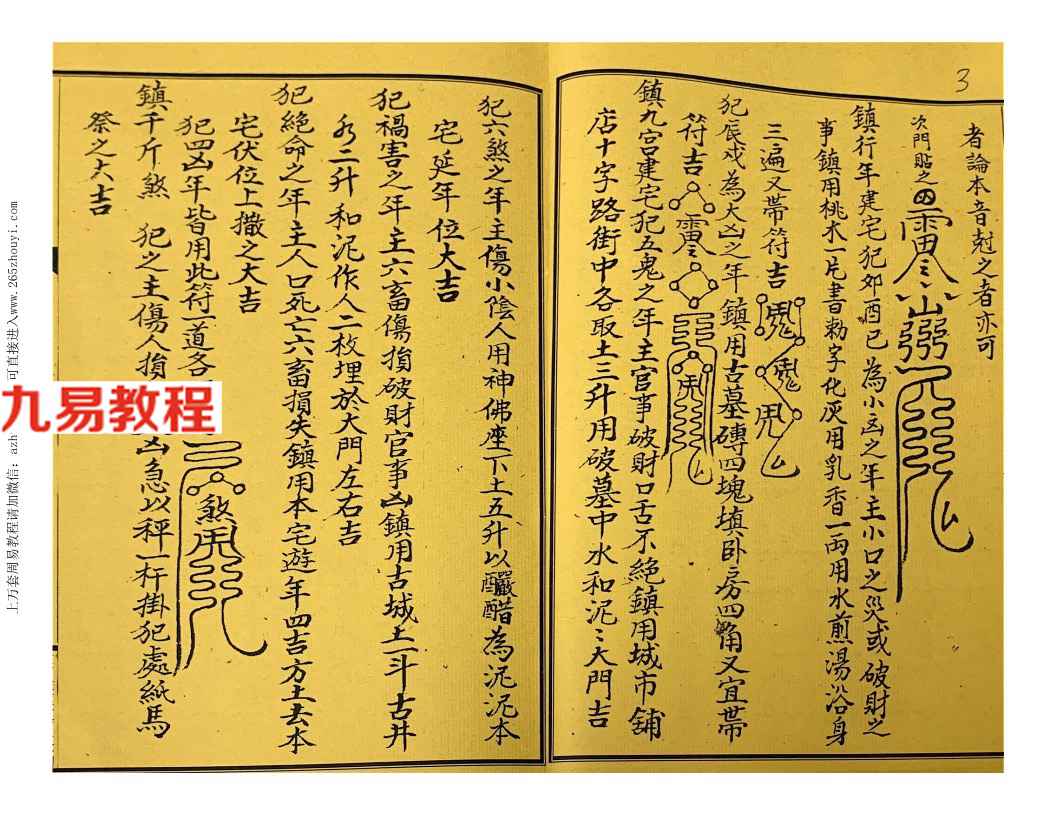 3
者論本音尅之者亦可
次門貼之
鎮行年建宅犯卯酉巳為小凶之年主小口之災或破財之
事鎮用桃木一片書勅字化灰用乳香一两用水煎湯沿身
三遍又帯符吉
犯辰戍為大凶之年 鎮用古墓磚四塊填卧房四角又宜帯
符吉
鎮九宫建宅犯五鬼之年主官事破財口舌不絶鎮用城市舖
店十字路街中各取土三升用破墓中水和泥〻大門吉
犯六煞之年主傷小陰人用神佛座下土五升以釅醋為泥泥本
宅延年位大吉
犯禍害之年主六畜傷損破財官事凶鎮用古城土一斗古井
水二升和泥作人二枚埋於大門左右吉
犯絶命之年主人口死亡六畜損失鎮用本宅遊年四吉方土去本
宅伏位上撒之大吉
犯四凶年皆用此符一道各
鎮千斤煞 犯之主傷人損
凶急以秤一杆掛犯處紙馬
祭之大吉
九易教程
上万套周易教程请加微信：azh
可直接进入www.265zhouyi.com